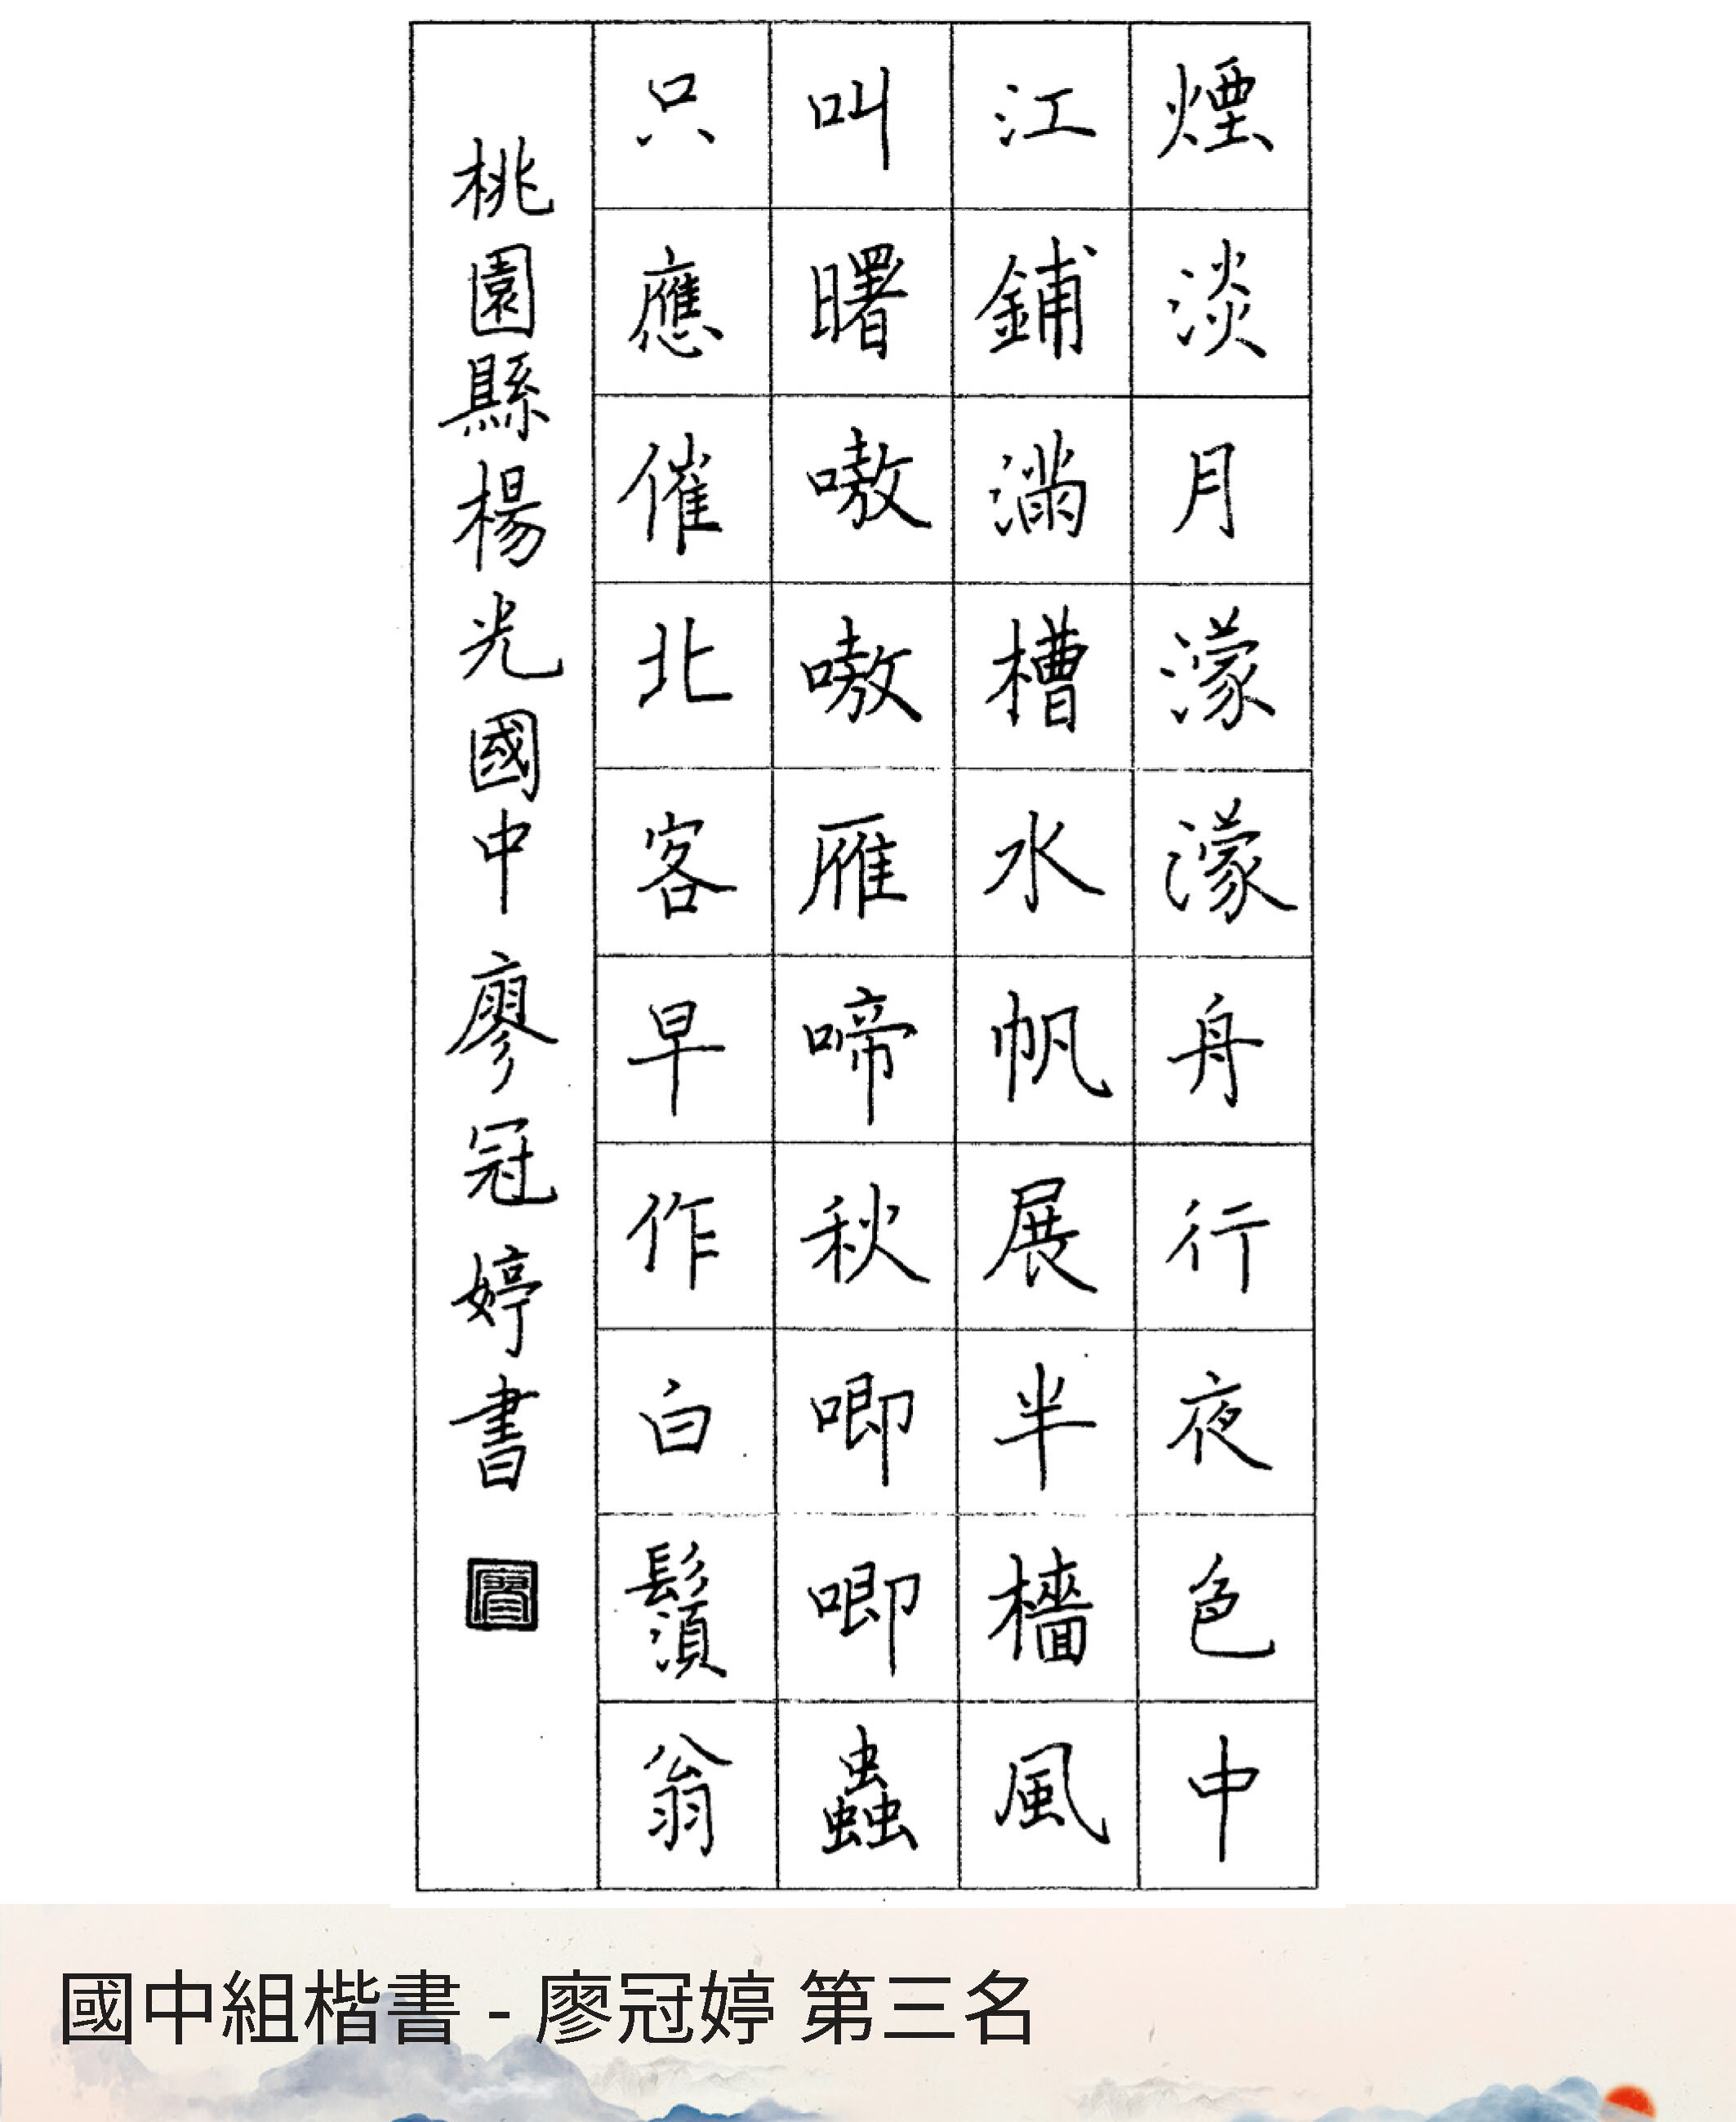 煙淡月濛濛舟行夜色中
江鋪滿槽水帆展半檣風
叫曙嗷嗷雁啼秋唧唧蟲
只應催北客早作白鬚翁
桃園縣楊光國中廖冠婷書
國中組楷書 - 廖冠婷 第三名